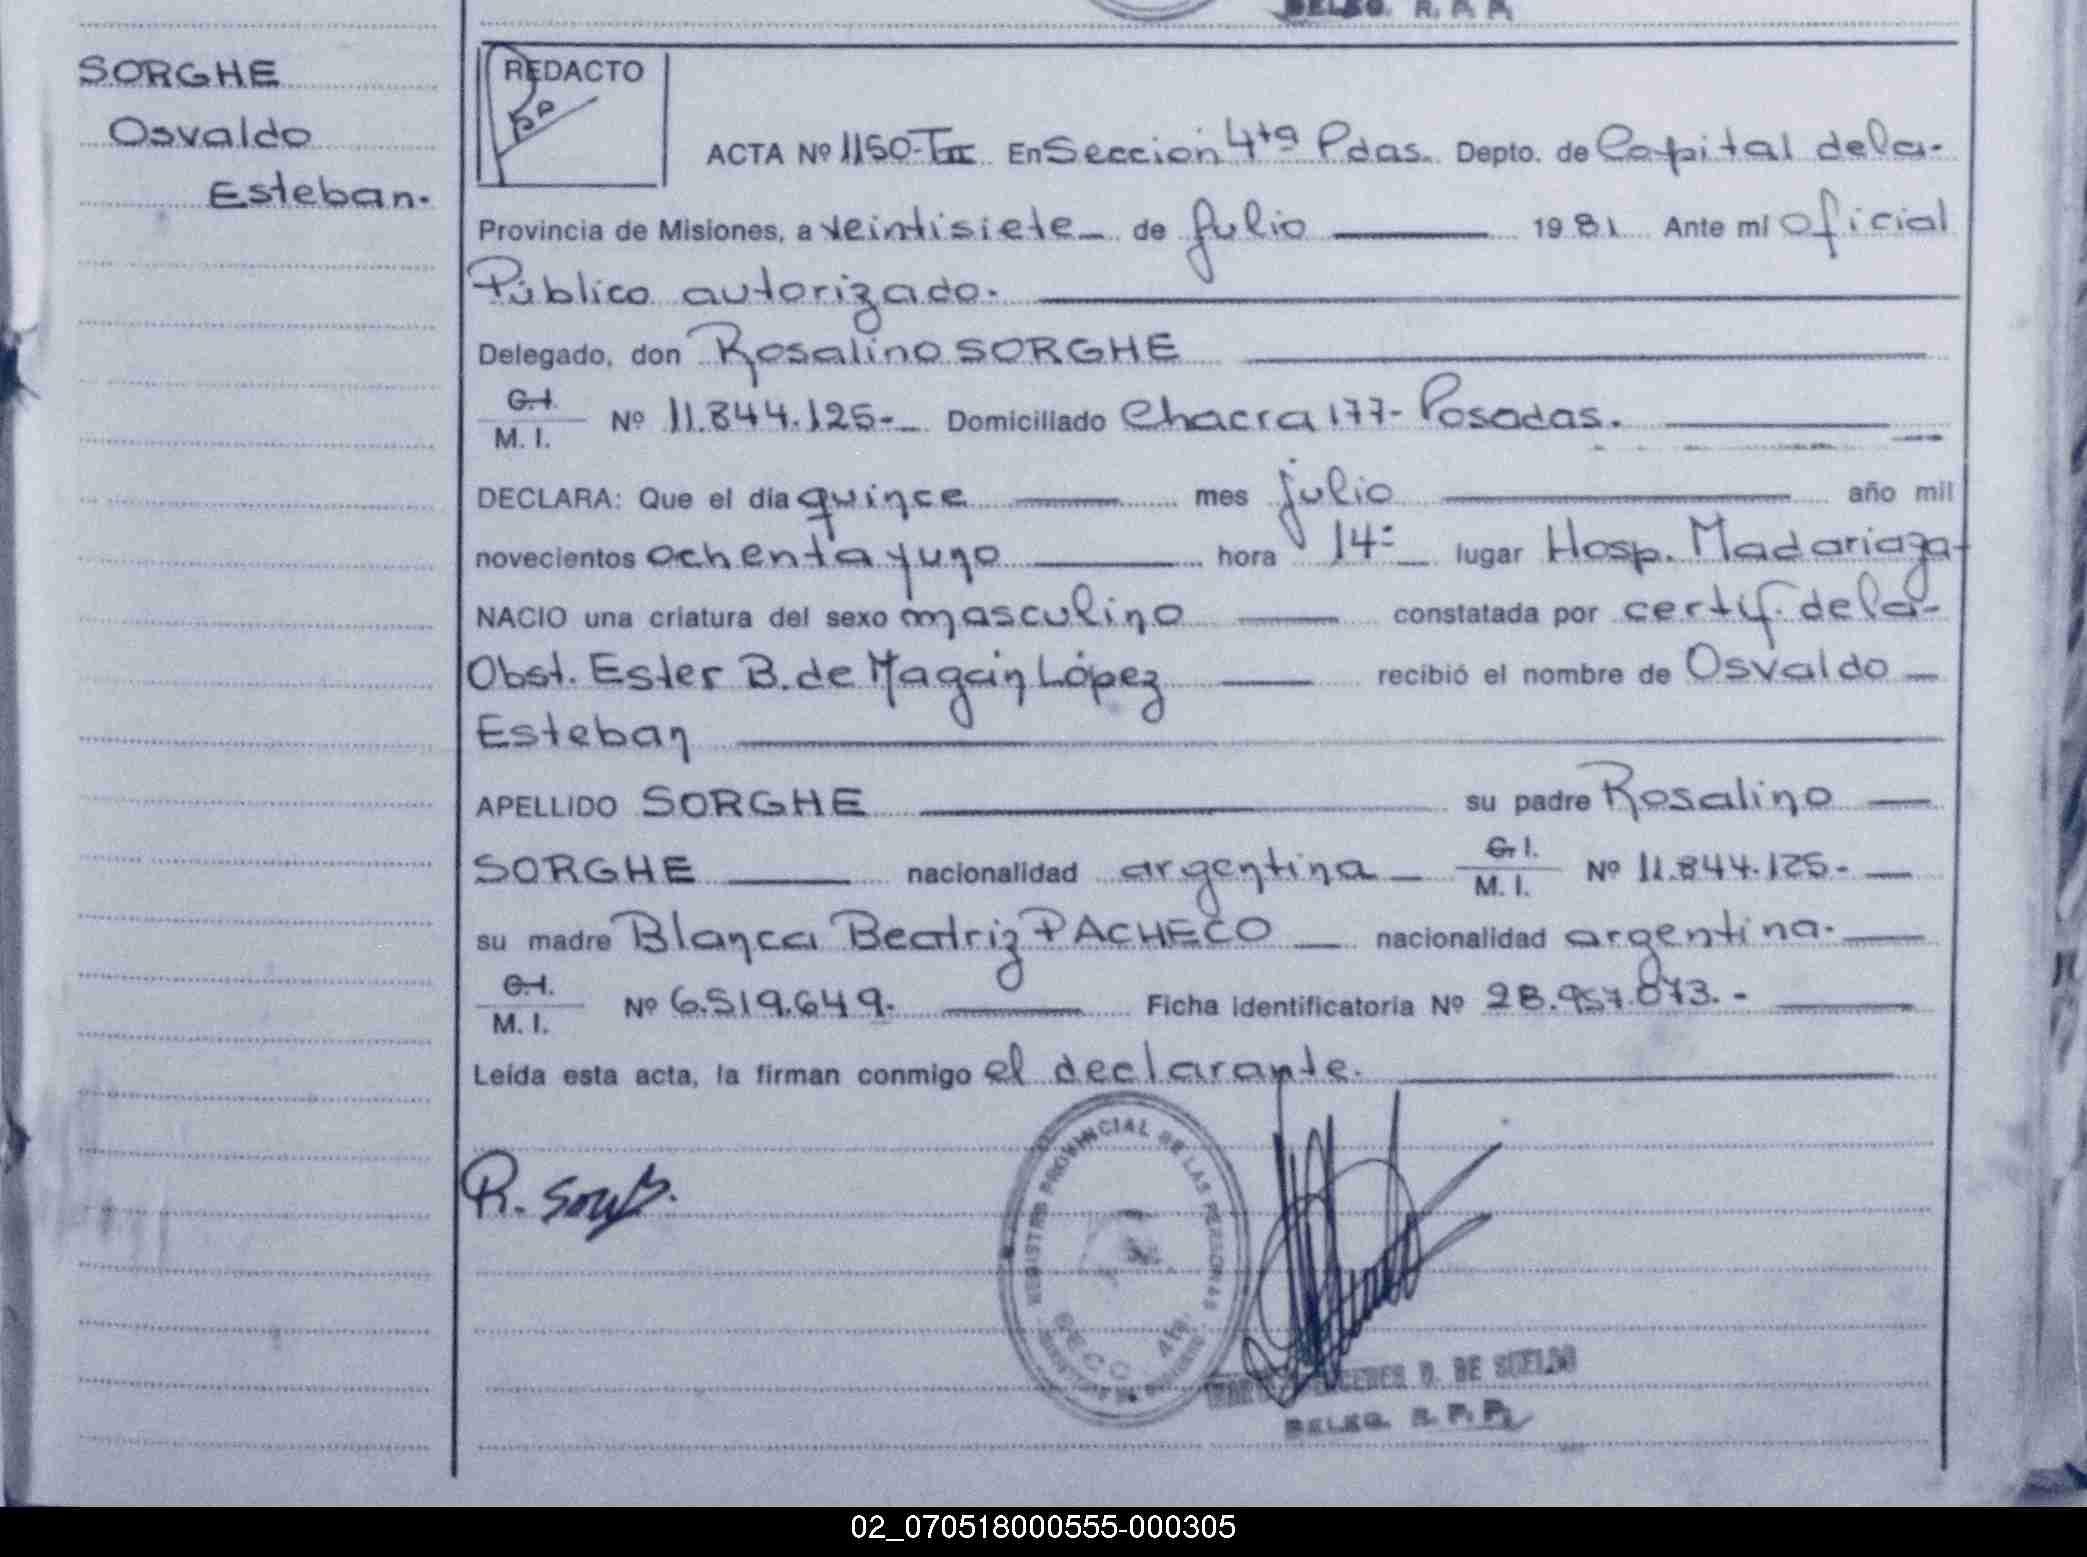 DELEG. R. P. P.
SORGHE
Osvaldo
Esteban.
REDACTO
ACTA Nº 1150-TIII En Sección 4ta Pdas. Depto. de Capital de la-
Provincia de Misiones, a veintisiete de Julio 1981 Ante mí oficial
Público autorizado.
Delegado, don Rosalino SORGHE
C.I.
M. I. Nº 11.844.125- Domiciliado Chacra 177- Posadas.
DECLARA: Que el día quince mes julio año mil
novecientos ochenta y uno hora 14- lugar Hosp. Madariaga-
NACIO una criatura del sexo masculino constatada por certif. de la-
Obst. Ester B. de Magain López recibió el nombre de Osvaldo
Esteban
APELLIDO SORGHE su padre Rosalino
SORGHE nacionalidad argentina C.I.
M. I. Nº 11.844.125-
su madre Blanca Beatriz PACHECO nacionalidad argentina.
C.I.
M. I. Nº 6.519.649. Ficha identificatoria Nº 28.957.073.-
Leída esta acta, la firman conmigo el declarante.
REGISTRO PROVINCIAL DE LAS PERSONAS
SECC. 4ta.
R.
D. DE SUELDO
DELEG. R. P. P.
02_070518000555-000305